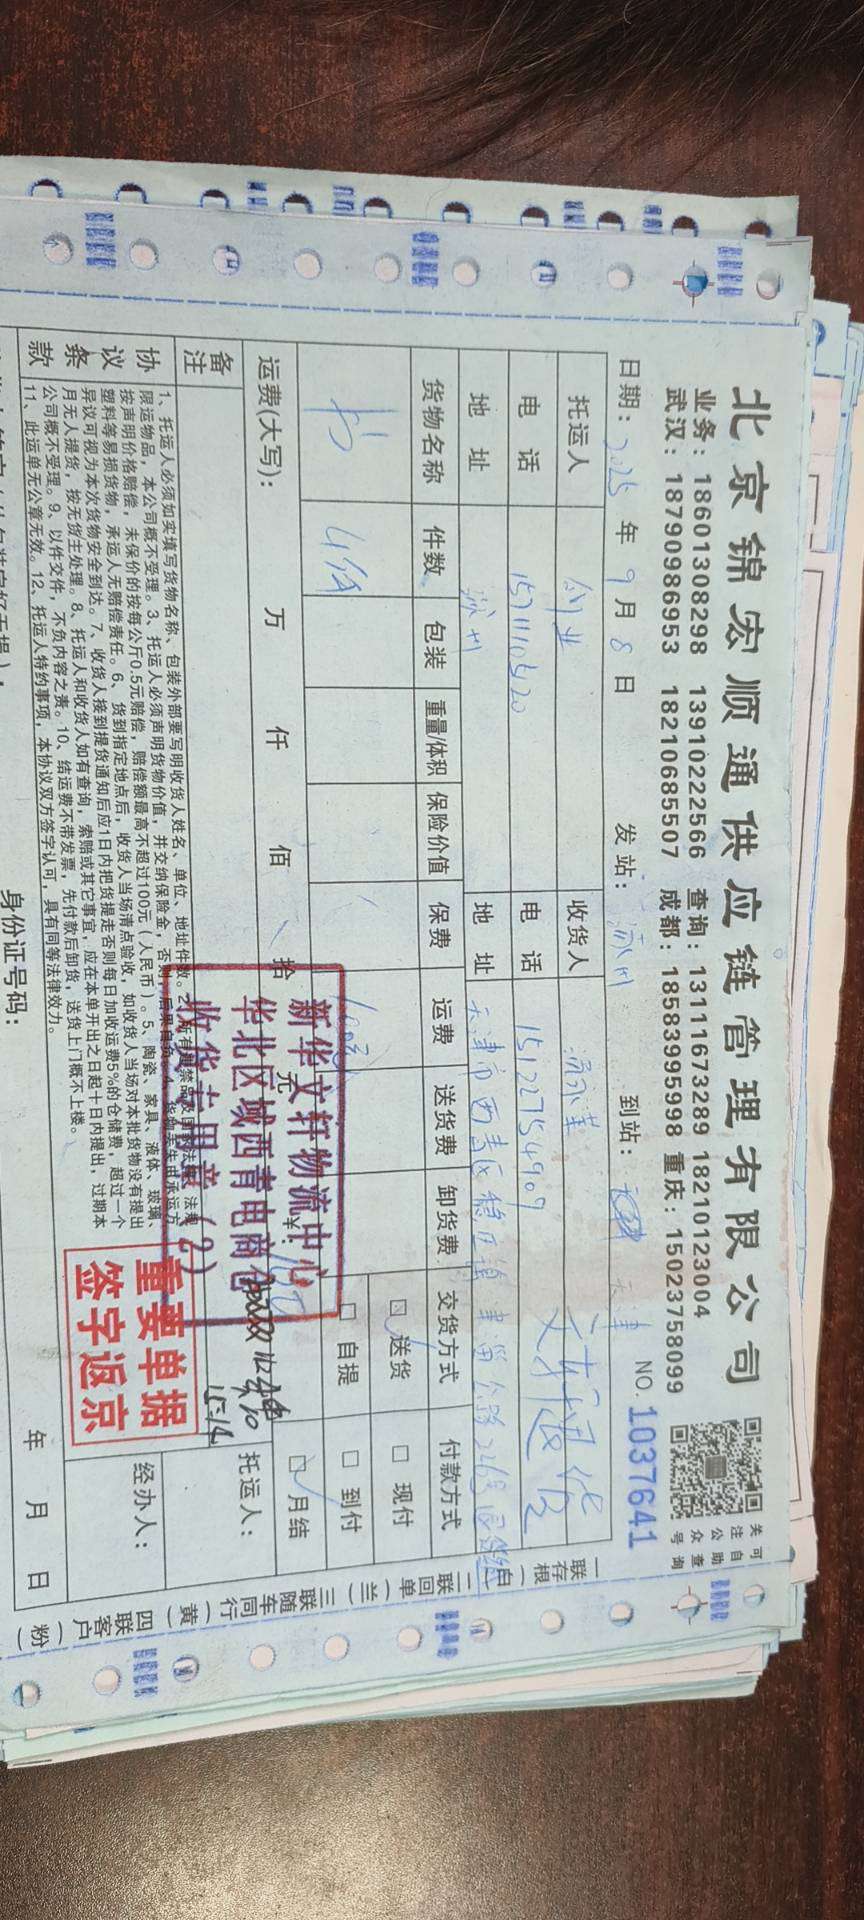 北京锦宏顺通供应链管理有限公司
业务：18601308298 13910222566 查询：13111673289 18210123004
武汉：18790986953 18210685507 成都：18583995998 重庆：15023758099
关注公众号
可自助查询
日期：2025年9月8日 发站：涿州 到站：天津
NO.1037641
托运人 创业 收货人
文轩退货
电话 15711110520 电话 15122754909
地址 涿州 地址 天津市西青区
货物名称 件数 包装 重量/体积 保险价值 保费 运费 送货费 卸货费 交货方式 付款方式
书 4件 送货 现付
自提 到付
月结
运费(大写)： 万 仟 佰 拾 元 ¥：
备注
托运人：
经办人：
协议条款
1、托运人必须如实填写货物名称、包装外部要写明收货人姓名、单位、地址件数。2、所有违禁品及国家法律、法规
限运物品，本公司概不受理。3、托运人必须声明货物价值，并交纳保险金，否则后果自负。4、货物丢失由承运方
按声明价格赔偿，未保价的按每公斤0.5元赔偿，赔偿额最高不超过100元（人民币）。5、陶瓷、家具、液体、玻璃、
塑料等易损货物，承运人无赔偿责任。6、货到指定地点后，收货人当场清点验收，如收货人当场对本批货物没有提出
异议可视为本次货物安全到达。7、收货人接到提货通知后应1日内把货提走否则每日加收运费5%的仓储费，超过一个
月无人提货，按无货主处理。8、托运人和收货人如有查询，索赔或其它事宜，应在本单开出之日起十日内提出，过期本
公司概不受理。9、以件交件，不负内容之责。10、结运费不带发票，先付款后卸货，送货上门概不上楼。
11、此运单无公章无效。12、托运人特约事项，本协议双方签字认可，具有同等法律效力。
新华文轩物流中心
华北区域西青电商仓
收货专用章（2）
重要单据
签字返京
一联存根（白）二联回单（兰）三联随车同行（黄）四联客户（粉）
身份证号码：
年 月 日